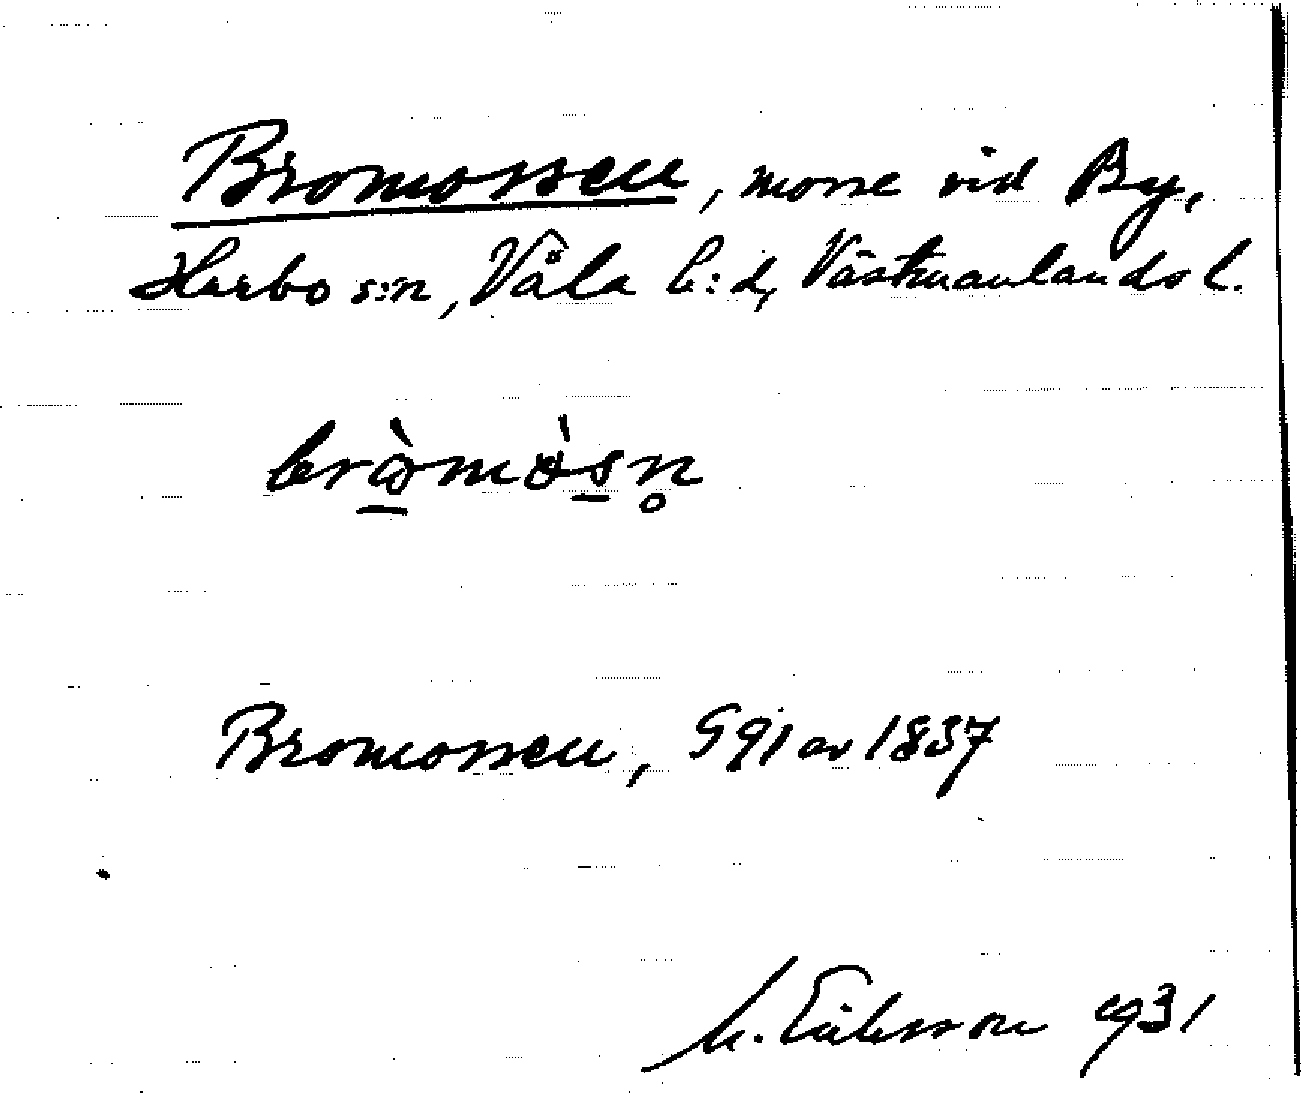 Bromossen, mosse vid By,
Harbo s:n, Våla h:d, Västmanlands l.
bròmòsn̥
Bromossen, G 91 av 1837
M. Eriksson 1931